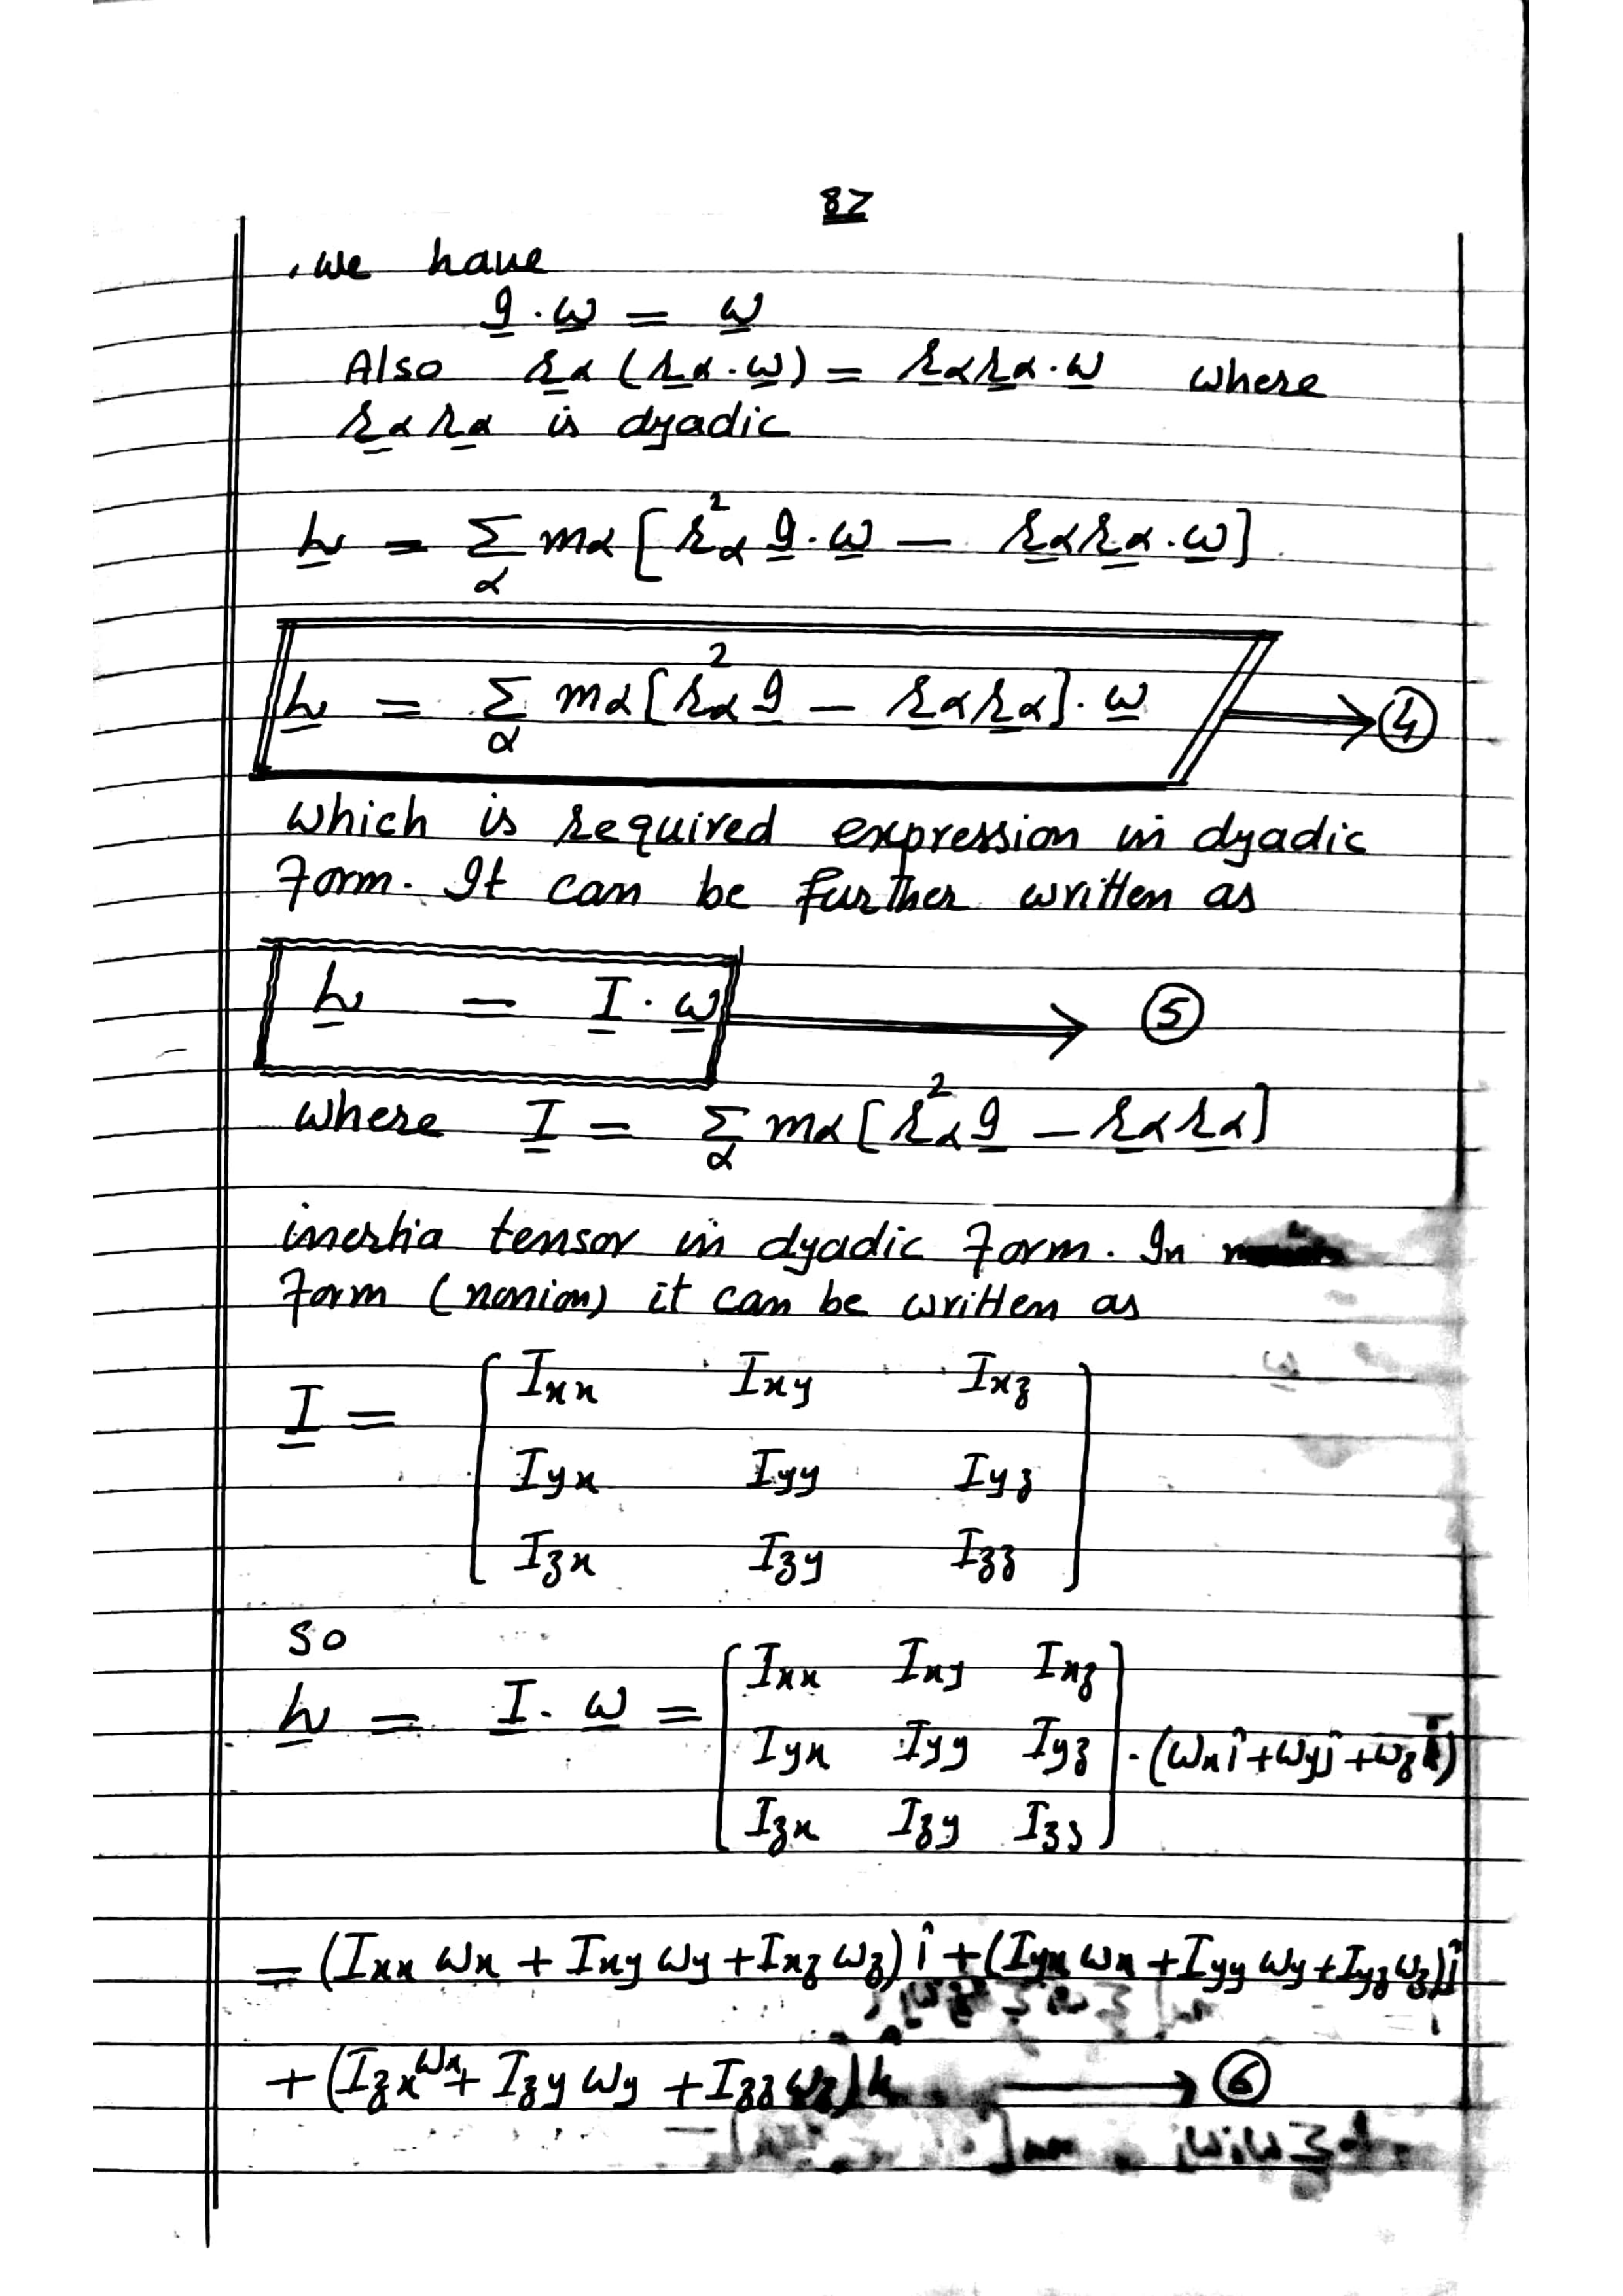 82
, we have
g̲ . ω̲ = ω̲
Also r̲α (r̲α . ω̲) = r̲α r̲α . ω̲ where
r̲α r̲α is dyadic
h̲ = Σα mα [r²α g̲ . ω̲ − r̲α r̲α . ω̲]
h̲ = Σα mα [r²α g̲ − r̲α r̲α] . ω̲ → ④
which is required expression in dyadic
form. It can be further written as
h̲ = I̲ . ω̲ → ⑤
where I̲ = Σα mα [r²α g̲ − r̲α r̲α]
inertia tensor in dyadic form. In
form (nonion) it can be written as
I̲ = [ Ixx Ixy Ixz
Iyx Iyy Iyz
Izx Izy Izz ]
so
h̲ = I̲ . ω̲ = [ Ixx Ixy Ixz
Iyx Iyy Iyz
Izx Izy Izz ] . (ωx î + ωy ĵ + ωz k̂)
= (Ixx ωx + Ixy ωy + Ixz ωz) î + (Iyx ωx + Iyy ωy + Iyz ωz) ĵ
+ (Izx ωx + Izy ωy + Izz ωz) k → ⑥